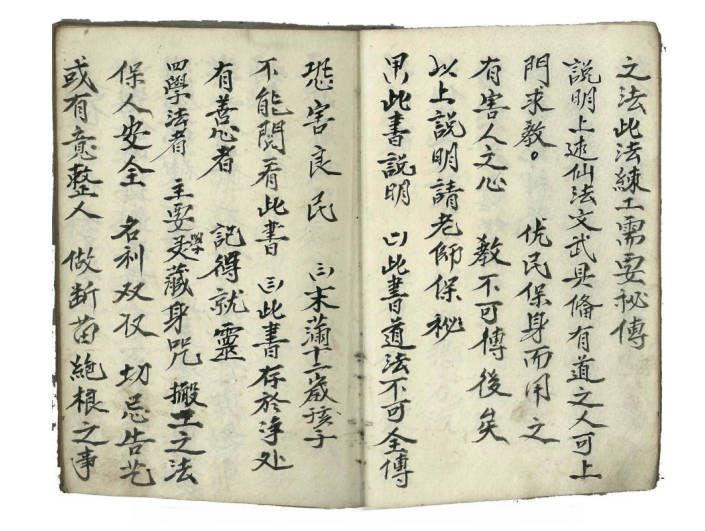 之法此法練工需要祕傳
説明上述仙法文武具俻有道之人可上
門求教。 优民保身而用之
有害人之心 教不可傳後矣
以上説明請老師保祕
用此書説明 ㈠此書道法不可全傳
恐害良民 ㈡未蒲十二歲孩子
不能閲看此書 ㈢此書存於净处
有善心者 記得就靈
四學法者 主要學藏身咒 搬工之法
保人安全 名利双收 切忌告
或有意整人 做断苗絶根之事